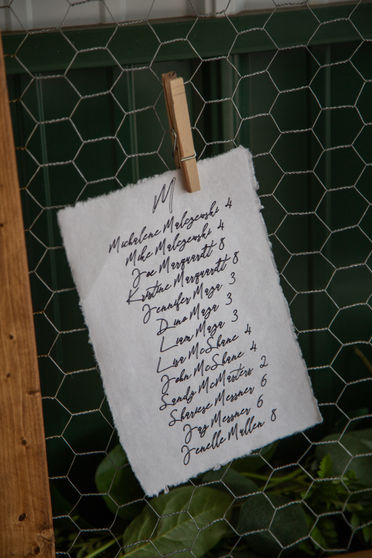 M
Michalene Malczewski 4
Mike Malczewski 4
Joe Marquardt 8
Kristine Marquardt 8
Jennifer Maza 3
Dino Maza 3
Liam Maza 3
Lisa McShane 4
John McShane 4
Sandy McMasters 2
Shariese Messner 6
Jay Messner 6
Jenelle Mullen 8